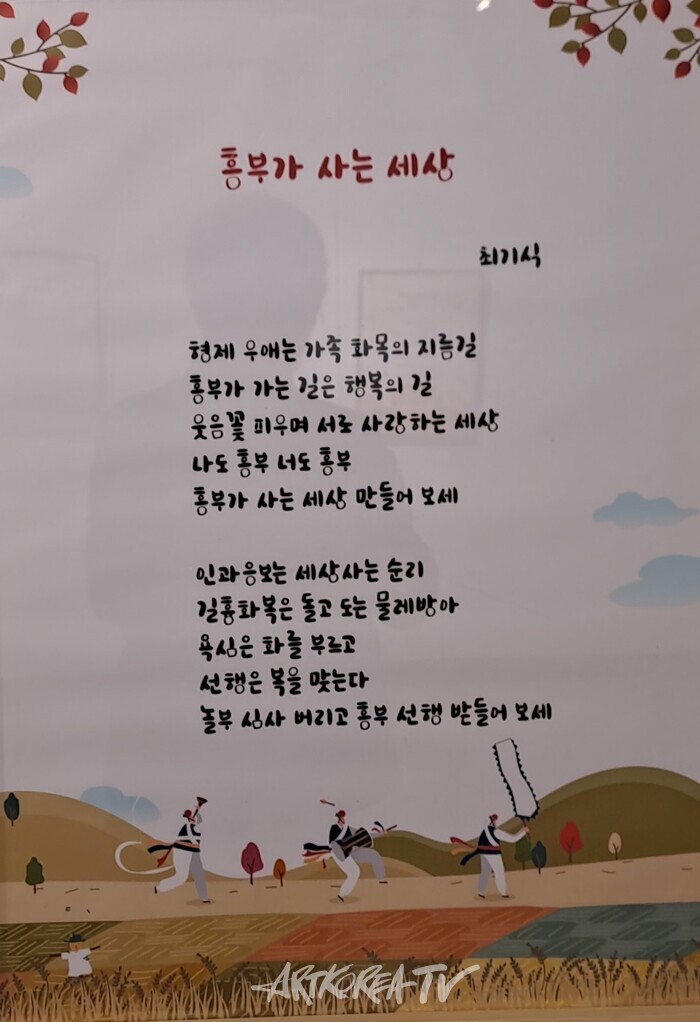 흥부가 사는 세상
최기식
형제 우애는 가족 화목의 지름길
흥부가 가는 길은 행복의 길
웃음꽃 피우며 서로 사랑하는 세상
나도 흥부 너도 흥부
흥부가 사는 세상 만들어 보세
인과응보는 세상사는 순리
길흉화복은 돌고 도는 물레방아
욕심은 화를 부르고
선행은 복을 맞는다
놀부 심사 버리고 흥부 선행 받들어 보세
ARTKOREA-TV